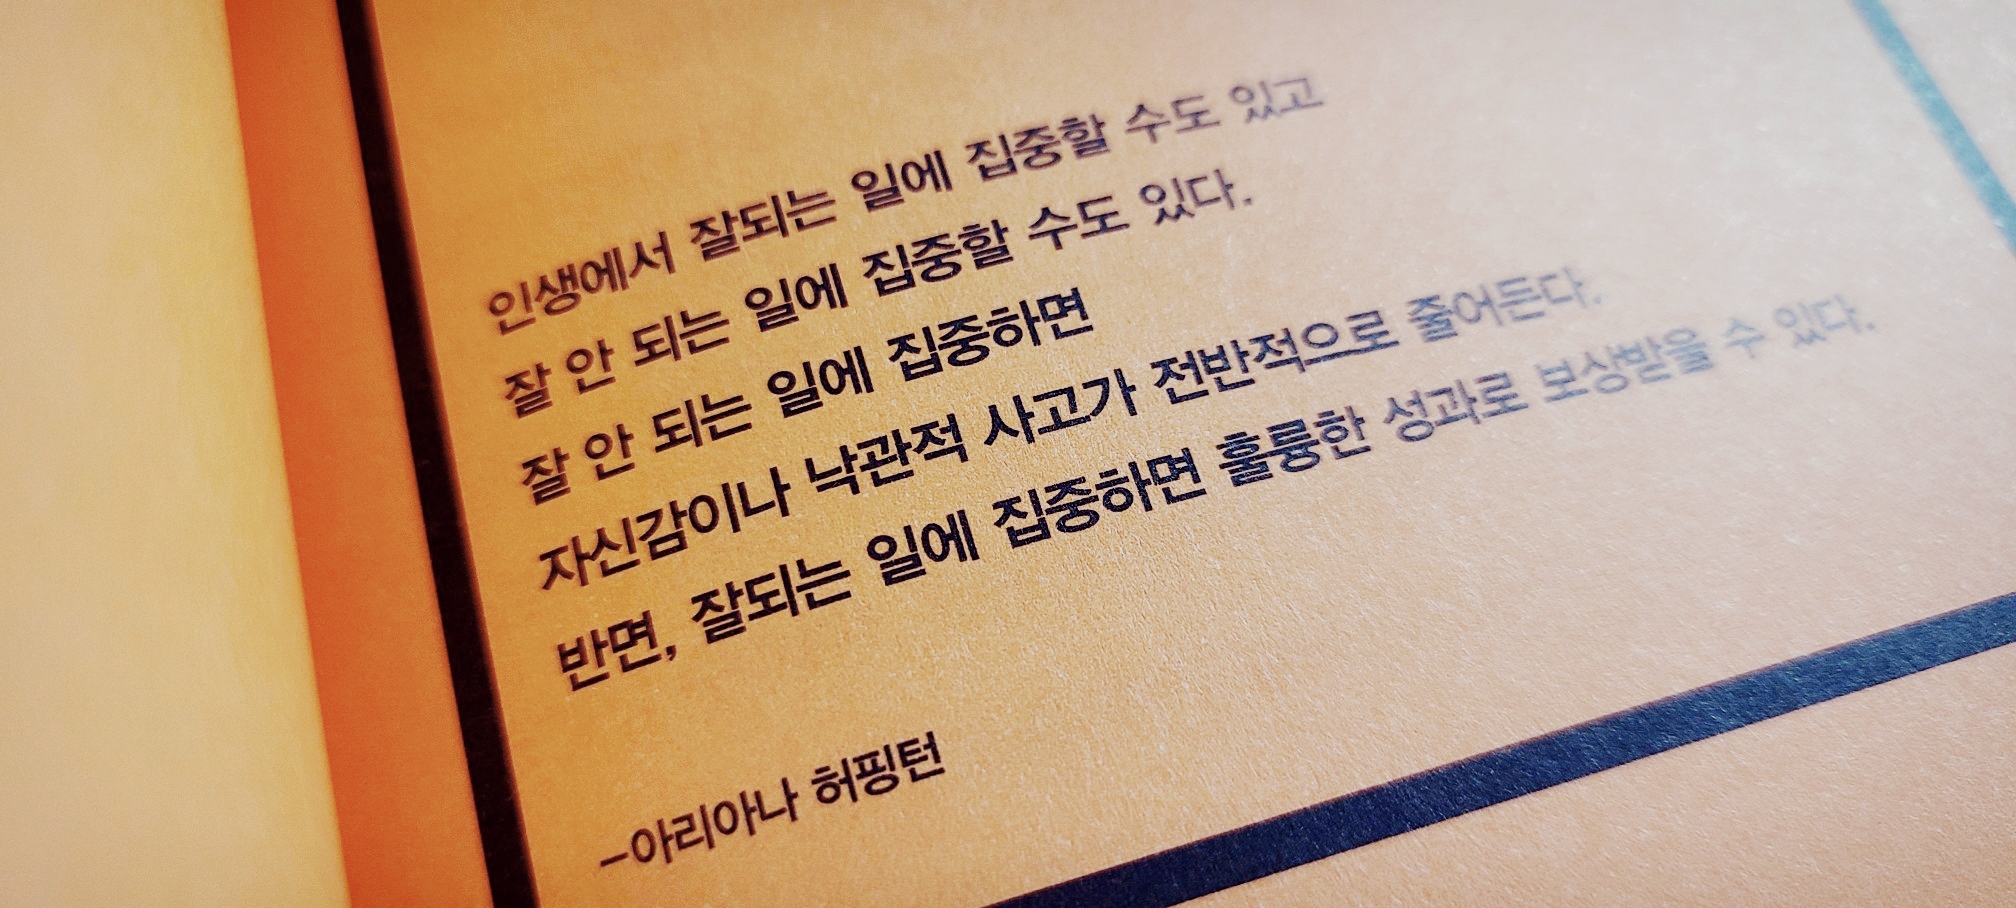 인생에서 잘되는 일에 집중할 수도 있고
잘 안 되는 일에 집중할 수도 있다.
잘 안 되는 일에 집중하면
자신감이나 낙관적 사고가 전반적으로 줄어든다.
반면, 잘되는 일에 집중하면 훌륭한 성과로 보상받을 수 있다.
-아리아나 허핑턴